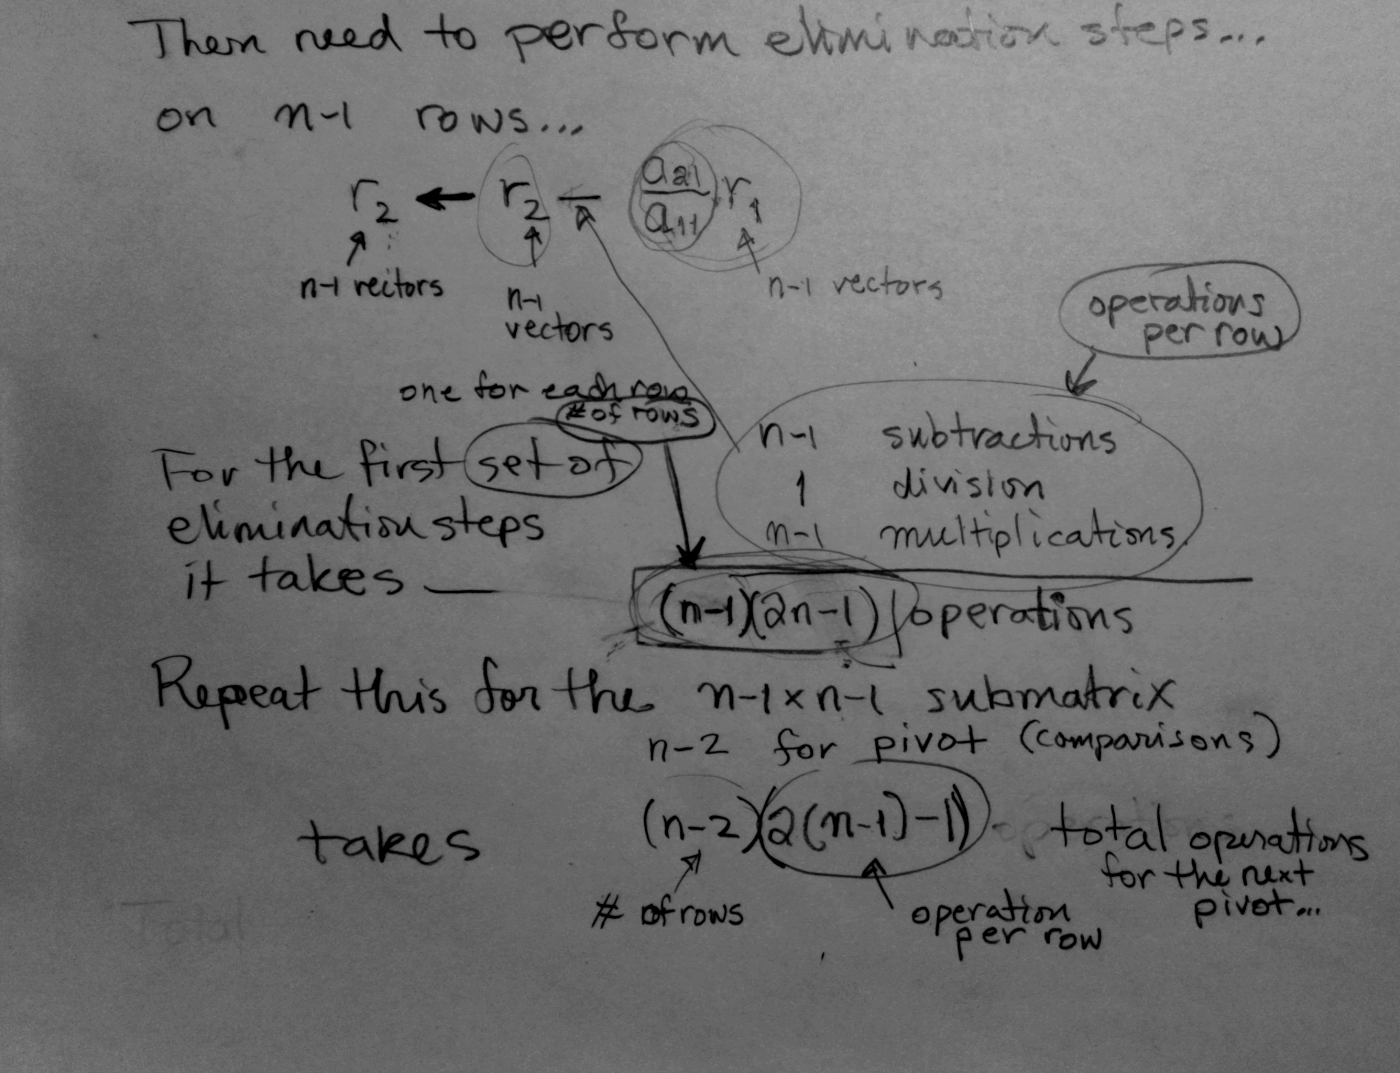 Then need to perform elimination steps...
on n-1 rows...
r₂ ← r₂ - a₂₁/a₁₁ r₁
n-1 vectors
n-1 vectors
n-1 vectors
operations per row
one for each row
# of rows
n-1 subtractions
For the first set of
1 division
elimination steps
n-1 multiplications.
it takes —
(n-1)(2n-1) operations
Repeat this for the n-1 x n-1 submatrix
n-2 for pivot (comparisons)
takes (n-2)(2(n-1)-1) total operations
for the next
pivot...
# of rows
operation
per row
Total